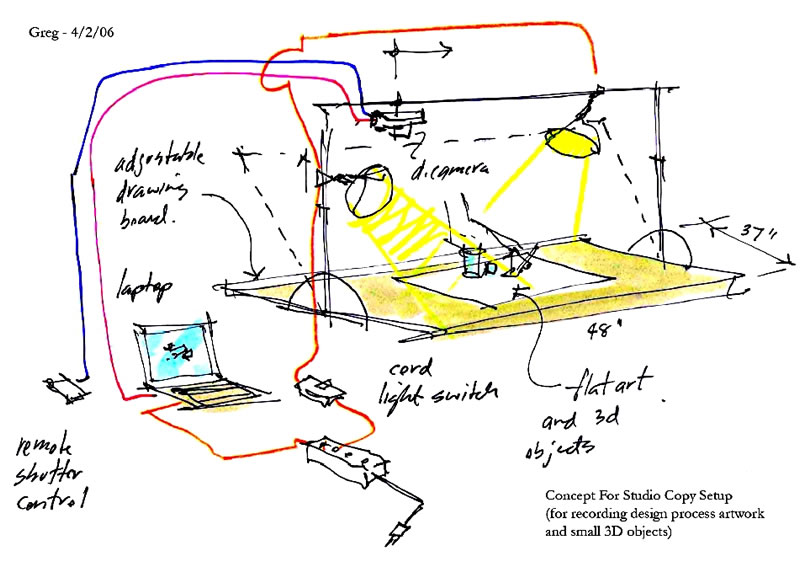 Greg - 4/2/06
adjustable
drawing
board.
d. camera
37"
laptop
48"
cord
light switch
flat art
and 3d
objects
remote
shutter
control
Concept For Studio Copy Setup
(for recording design process artwork
and small 3D objects)